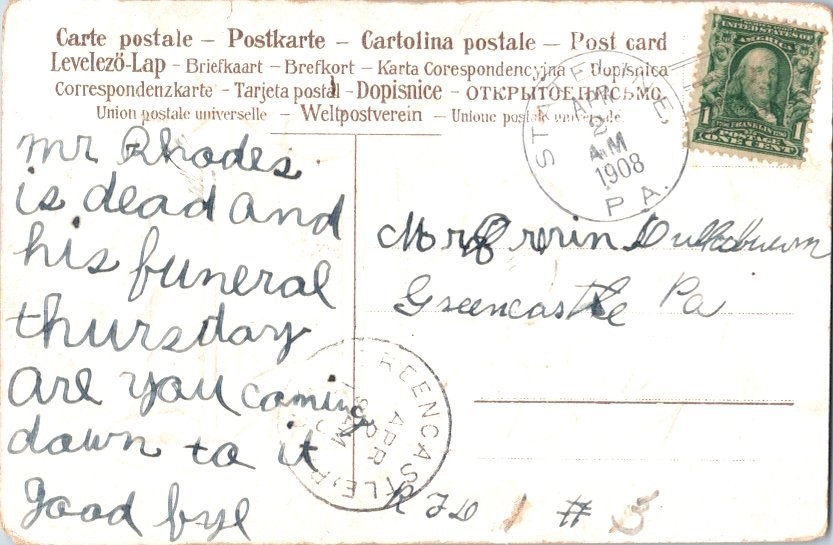 Carte postale – Postkarte – Cartolina postale – Post card
Levelező-Lap – Briefkaart – Brefkort – Karta Corespondencyjna – Dopisnica
Correspondenzkarte – Tarjeta postal – Dopisnice – ОТКРЫТОЕ ПИСЬМО.
Union postale universelle – Weltpostverein – Unione postale universale
UNITED STATES OF
AMERICA
FRANKLIN
1 POSTAGE 1
ONE CENT
STATE LINE,
APR
2
A.M
1908
PA.
mr Rhodes
is dead and
his funeral
thursday
are you coming
down to it
good bye
Mr Orvin
Greencastle Pa
GREENCASTLE, P
APR
2
AM
RFD # 3